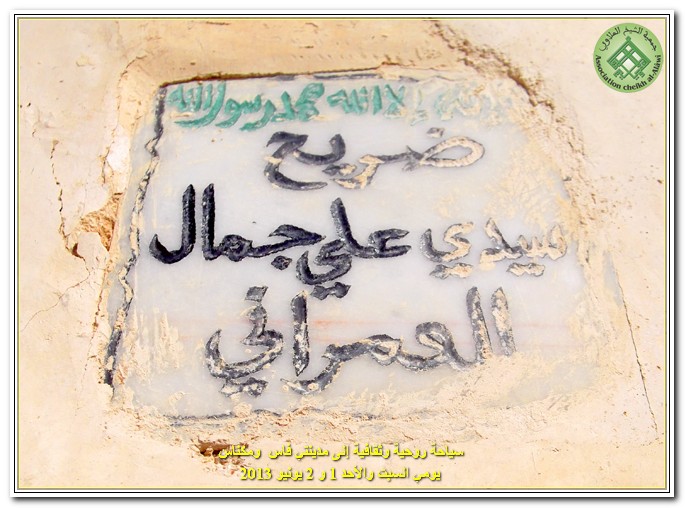 جمعية الشيخ العلاوي
Association cheikh al-Alawi
إلا الله محمد رسول الله
ضريح
سيدي علي جمال
العمراني
سياحة روحية وثقافية إلى مدينتي فاس ومكناس
يومي السبت والأحد 1 و 2 يونيو 2013